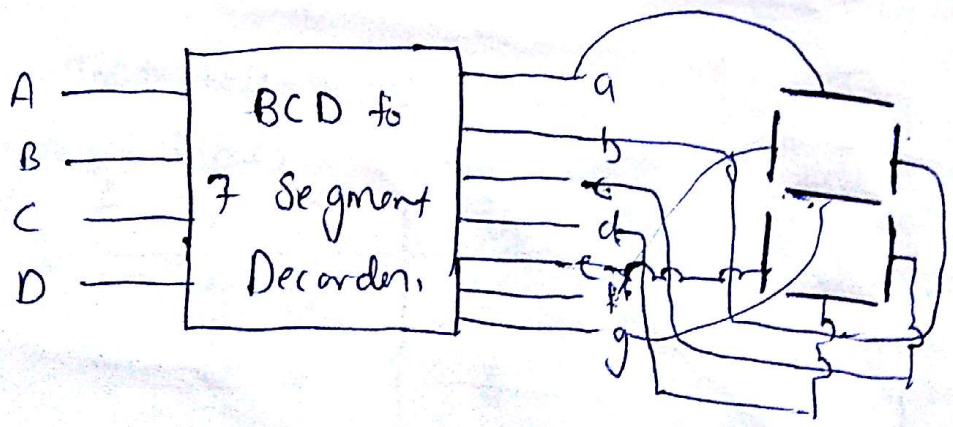 A
B
C
D
BCD to
7 Segment
Decorder.
a
b
c
d
e
f
g